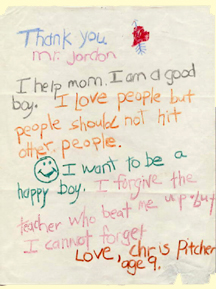 Thank you
Mr. Jordon
I help mom. I am a good
boy. I love people but
people should not hit
other people.
I want to be a
happy boy. I forgive the
teacher who beat me up but
I cannot forget
Love, Chris Pitcher
age 9.